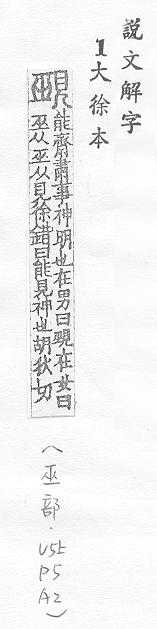 說文解字
1大徐本
覡 能齋肅事神明也在男曰覡在女曰
巫从巫从見徐鍇曰能見神也胡狄切
(巫部.V5上
P5
A2)